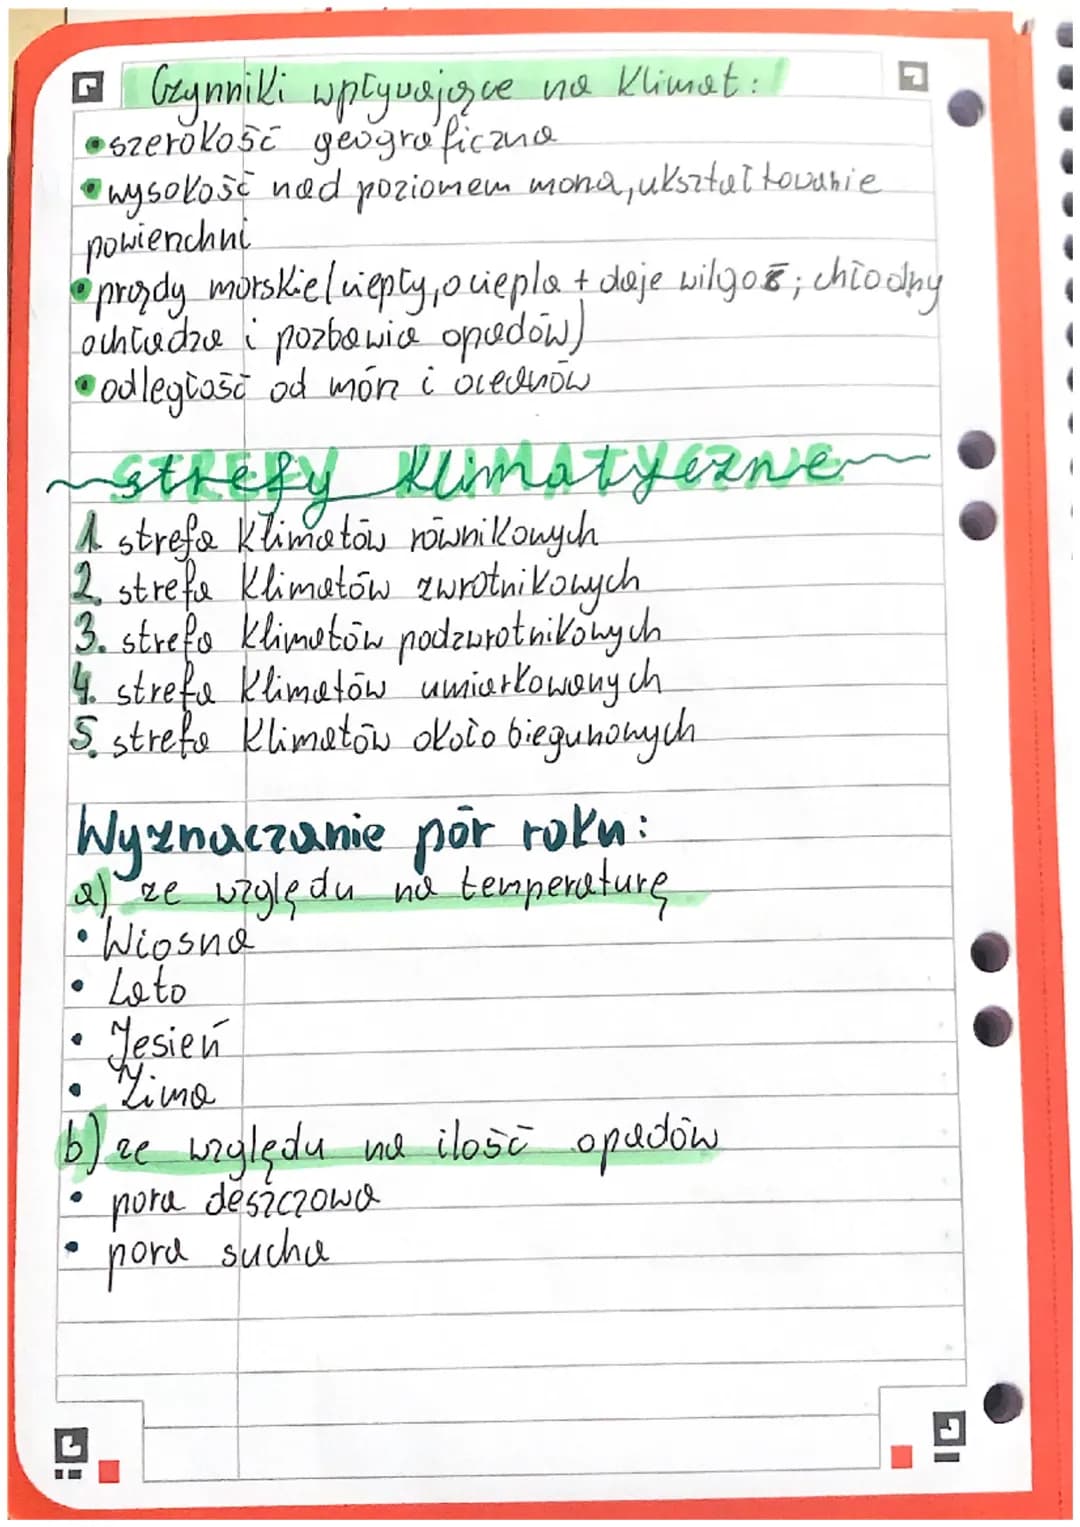 Czynniki wpływające na klimat:
• szerokość geograficzna
• wysokość nad poziomem morza, ukształtowanie
powierzchni
• prądy morskie (ciepły, ociepla + daje wilgoć; chłodny
ochładza i pozbawia opadów)
• odległość od mórz i oceanów
~STREFY KLIMATYCZNE~
1. strefa klimatów równikowych
2. strefa klimatów zwrotnikowych
3. strefa klimatów podzwrotnikowych
4. strefa klimatów umiarkowanych
5. strefa klimatów okołobiegunowych
Wyznaczanie pór roku:
a) ze względu na temperaturę
• Wiosna
• Lato
• Jesień
• Zima
b) ze względu na ilość opadów
• pora deszczowa
• pora sucha